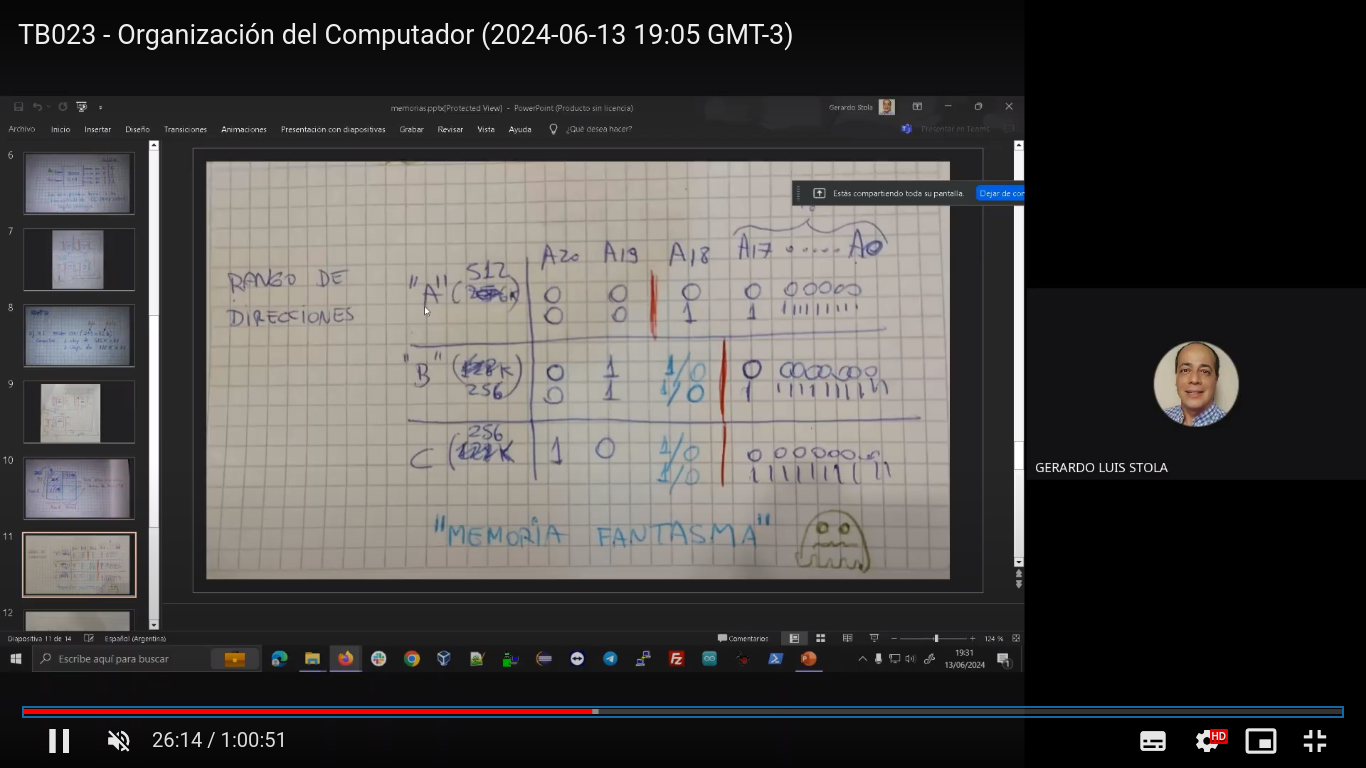 TB023 - Organización del Computador (2024-06-13 19:05 GMT-3)
memorias.pptx(Protected View) - PowerPoint (Producto sin licencia)
Gerardo Stola
Archivo Inicio Insertar Diseño Transiciones Animaciones Presentación con diapositivas Grabar Revisar Vista Ayuda ¿Qué desea hacer? Presentar en Teams
Estás compartiendo toda su pantalla.
Dejar de com
6
7
8
9
10
11
12
A20 A19 A18 A17 ..... A0
RANGO DE
DIRECCIONES
"A" ( 512
0 0 0 0 00000
0 0 1 1 11111111
"B" (128K)
256
0 1 1/0 0 0000000
0 1 1/0 1 1111111111
C ( 256
1 0 1/0 0 000000
1/0 1 11111111
"MEMORIA FANTASMA"
Diapositiva 11 de 14 Español (Argentina)
Comentarios
124 %
Escribe aquí para buscar
19:31
13/06/2024
GERARDO LUIS STOLA
26:14 / 1:00:51
HD